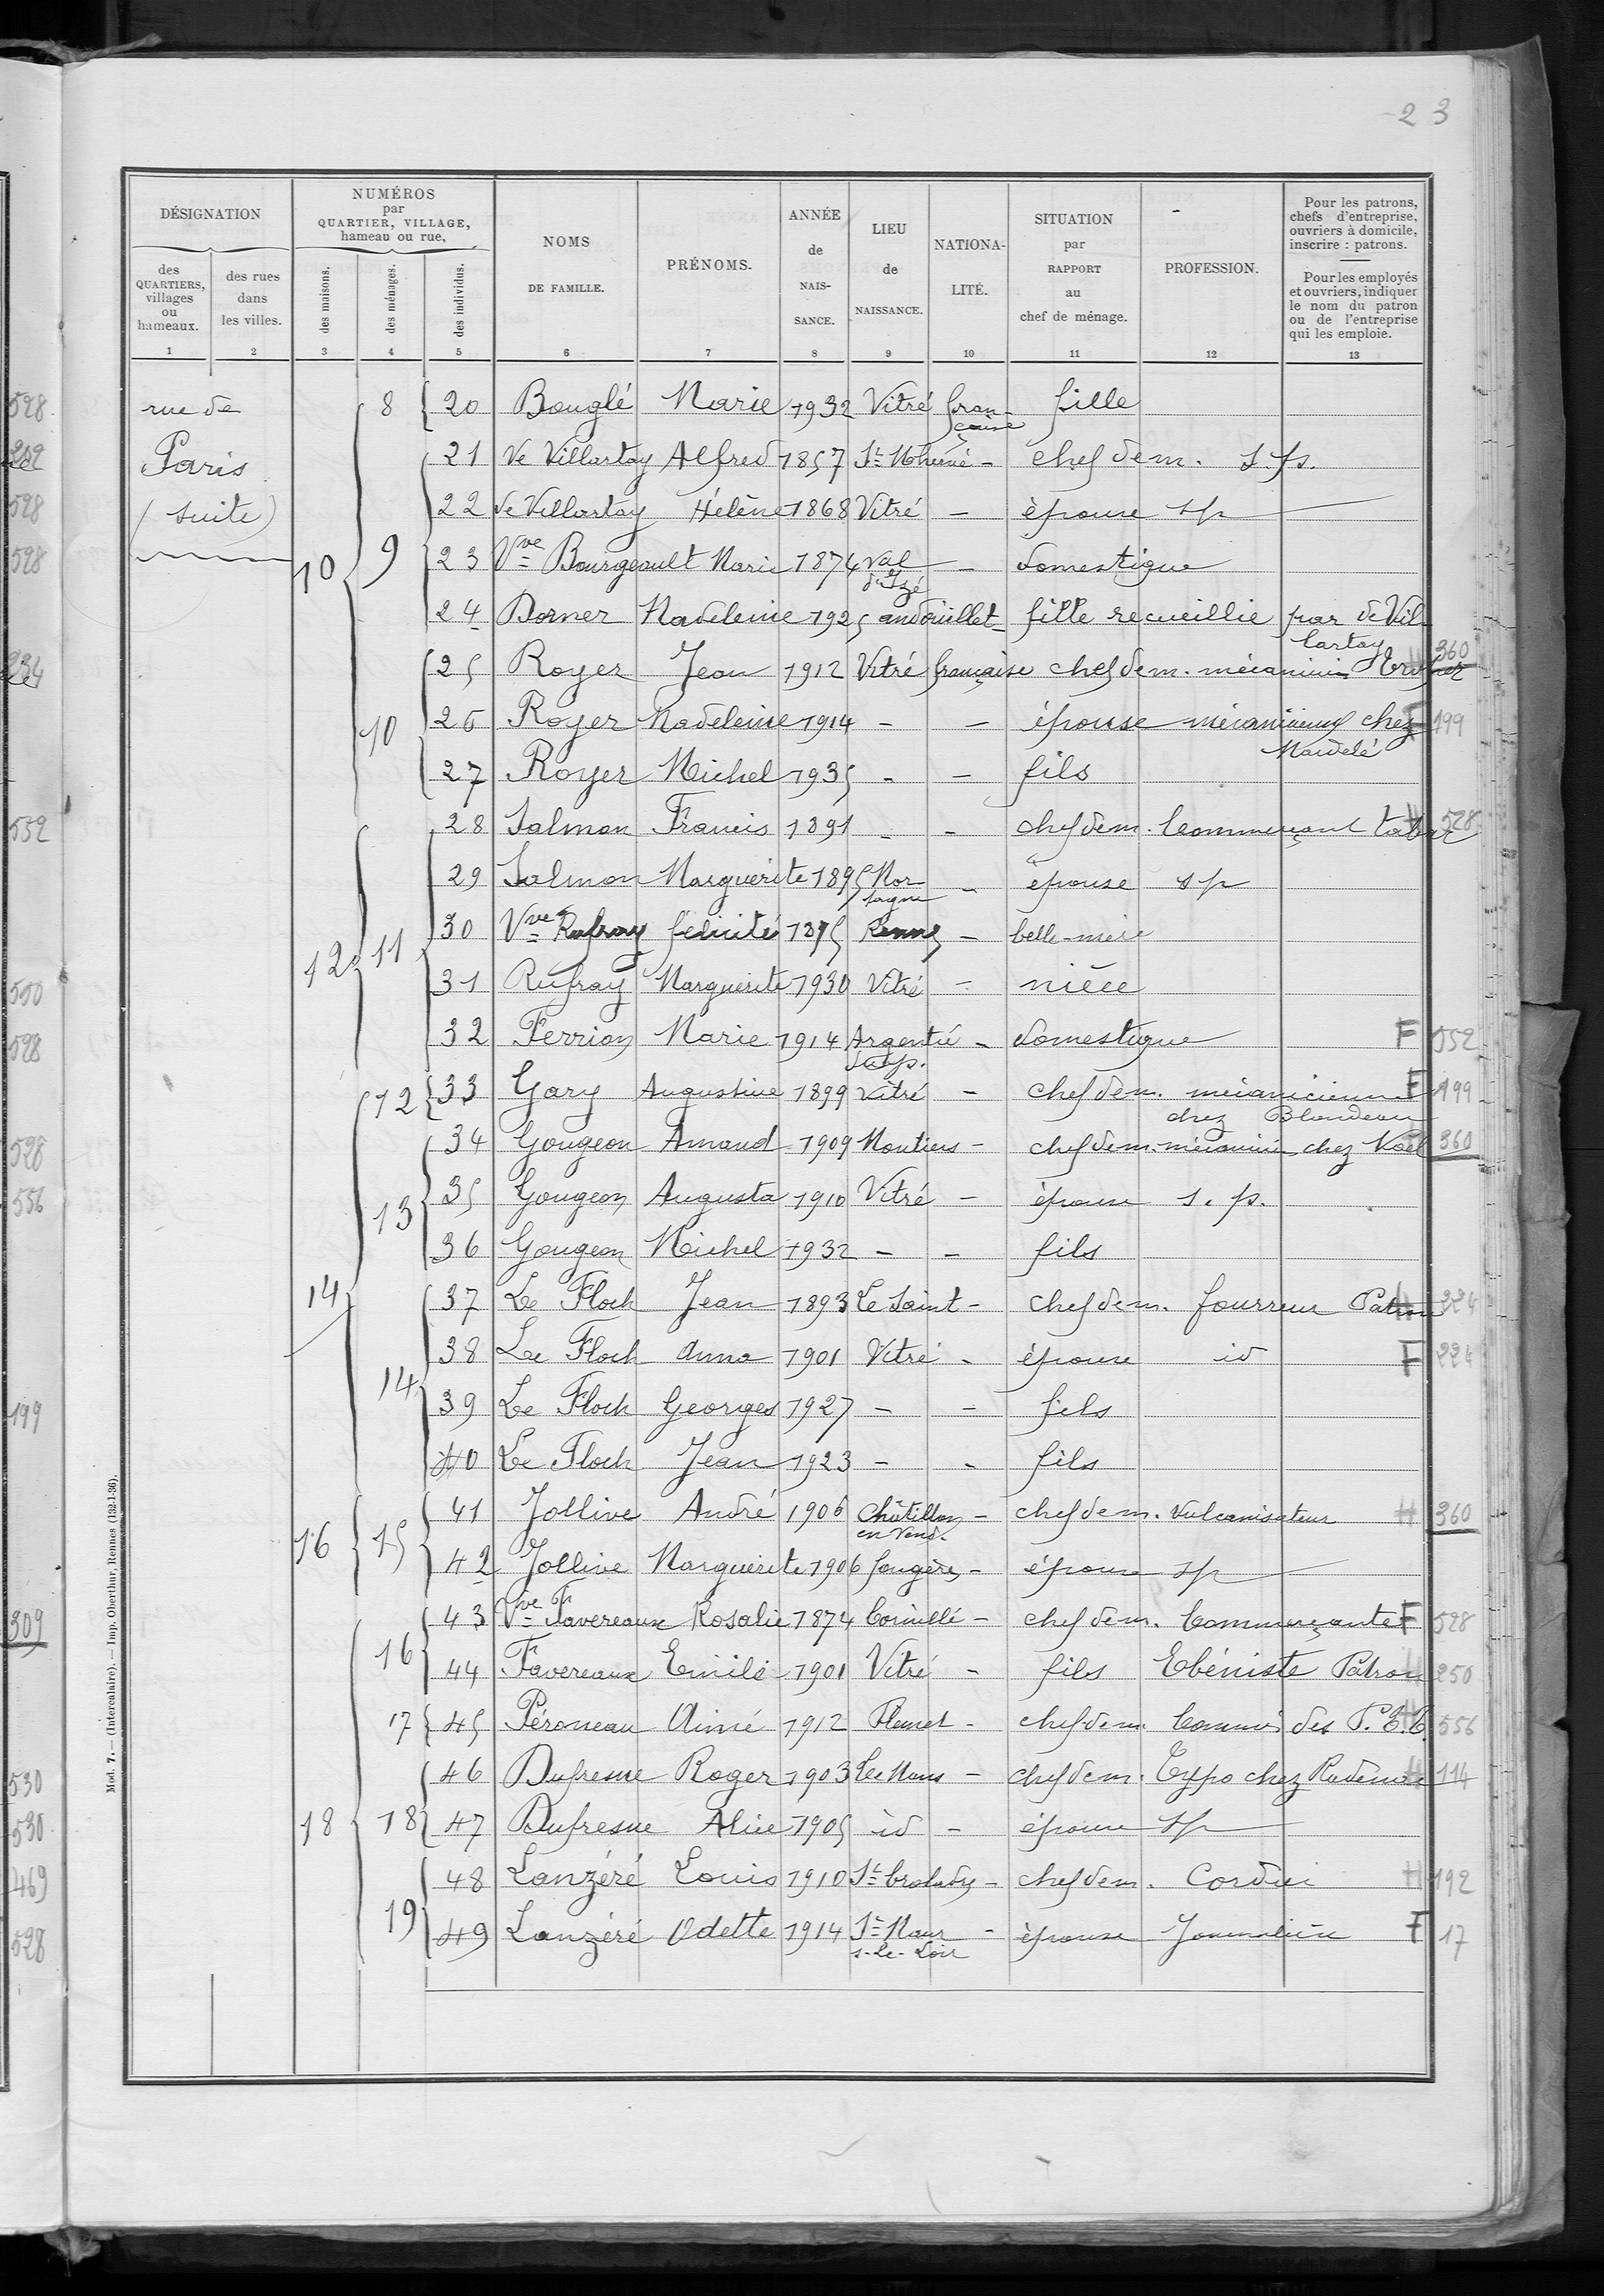 23
DÉSIGNATION
des QUARTIERS, villages ou hameaux.
des rues dans les villes.
NUMÉROS par QUARTIER, VILLAGE, hameau ou rue,
des maisons.
des ménages.
des individus.
NOMS DE FAMILLE.
PRÉNOMS.
ANNÉE de NAIS- SANCE.
LIEU de NAISSANCE.
NATIONA- LITÉ.
SITUATION par RAPPORT au chef de ménage.
PROFESSION.
Pour les patrons, chefs d'entreprise, ouvriers à domicile, inscrire : patrons.
Pour les employés et ouvriers, indiquer le nom du patron ou de l'entreprise qui les emploie.
1 2 3 4 5 6 7 8 9 10 11 12 13
rue de Paris (suite)
8 20 Bouglé Marie 1932 Vitré fran- çaise fille
21 de Villartay Alfred 1857 - chef de m. s.p.
22 de Villartay Hélène 1868 Vitré - épouse sp
10 9 23 Vve Bourgeault Marie 1874 Val d'Izé - domestique
24 Borner Madeleine 1925 andouillet - fille recueillie par de Vil- lartay
25 Royer Jean 1912 Vitré française chef de m. mécanicien 360
10 26 Royer Madeleine 1914 - - épouse mécanicienne chez F 199
27 Royer Michel 1935 - - fils
28 Salmon Francis 1891 - - chef de m. Commerçant tabac 528
29 Salmon Marguerite 1895 Mor- tagne - épouse sp
12 11 30 Vve Rufray félicité 1875 Rennes - belle-mère
31 Rufray Marguerite 1930 Vitré - nièce
32 Ferrion Marie 1914 Argentré - domestique F 552
12 33 Gary Augustine 1899 Vitré - chef de m. mécanicienne chez Blandeau F 199
34 Gougeon Amand 1909 Moutiers - chef de m. mécanicien chez Noël 360
13 35 Gougeon Augusta 1910 Vitré - épouse s.p.
36 Gougeon Michel 1932 - - fils
14 37 Le Floch Jean 1893 Le Saint - chef de m. fourreur Patron 224
38 Le Floch Anna 1901 Vitré - épouse id F 224
14 39 Le Floch Georges 1927 - - fils
40 Le Floch Jean 1923 - - fils
41 Jollive André 1906 Châtillon en Vend. - chef de m. Vulcanisateur H 360
16 15 42 Jollive Marguerite 1906 fougères - épouse sp
43 Vve Favereaux Rosalie 1874 Cornillé - chef de m. Commerçante F 528
16 44 Favereaux Emile 1901 Vitré - fils Ebéniste Patron 250
17 45 Péroneau Aimé 1912 - chef de m. Commis des P.T.T. 556
46 Dufresne Roger 1903 Le Mans - chef de m. Typo chez H 114
18 18 47 Dufresne Alice 1905 id - épouse sp
48 Lanzéré Louis 1910 St Broladre - chef de m. H 192
19 49 Lanzéré Odette 1914 St Maur s-Le-Loir - épouse Journalière F 17
Mod. 7. — (Intercalaire). — Imp. Oberthur, Rennes (132-1-36).
528
528
598
234
552
550
598
598
556
199
309
530
530
469
528